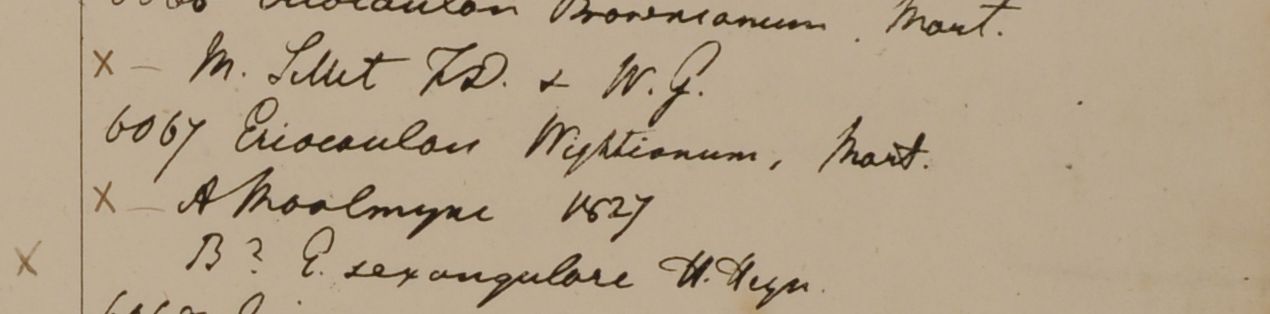 Eriocaulon Brownianum. Mart.
X — M. Sillet F.D. & W.G.
6067 Eriocaulon Wightianum, Mart.
X — A Moolmyne 1827
X B? E. sexangulare H. Heyn.